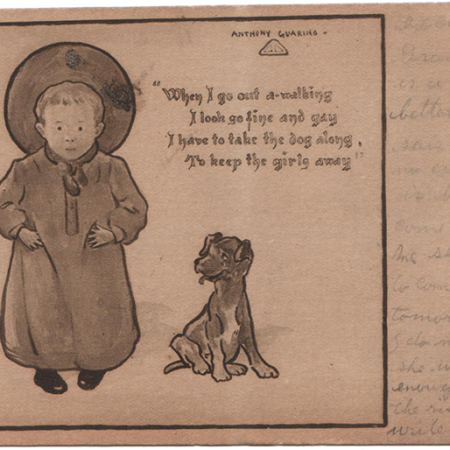 ANTHONY GUARINO -
"When I go out a-walking
I look so fine and gay
I have to take the dog along,
To keep the girls away"
is a
bette
come
to com
tomor
I do n
she w
enoug
the ri
write